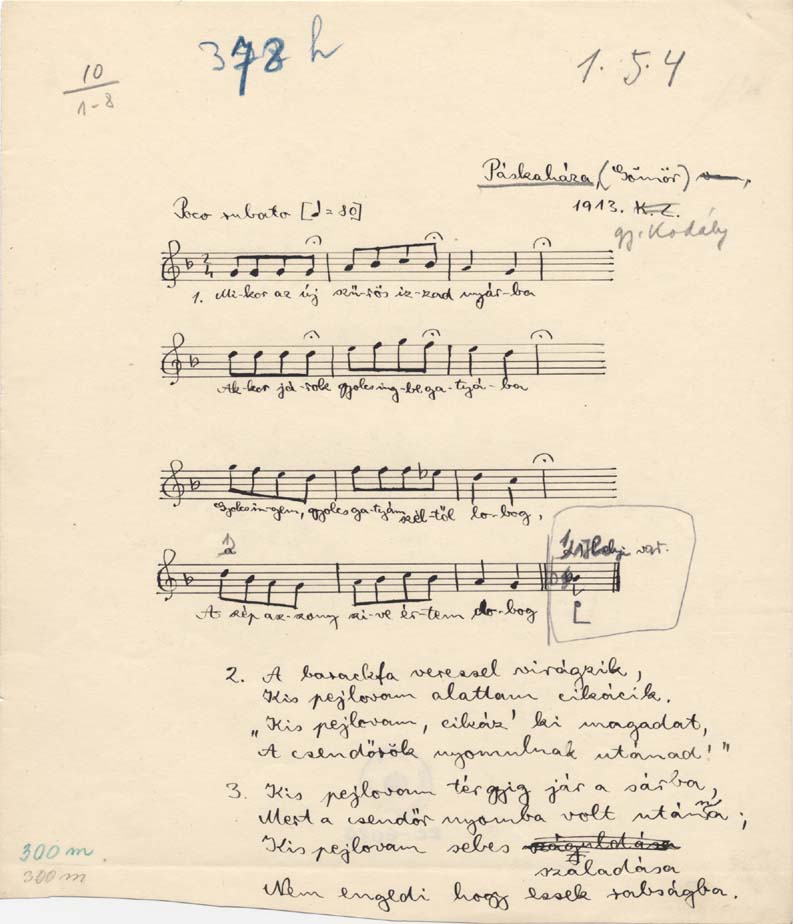 378 h
10
1-8
1.5.4
Páskaháza, (Gömör)
1913. K. Z.
gy. Kodály
Poco rubato [♩=80]
1. Mi-kor az új szű-rös iz-zad nyár-ba
Ak-kor já-rok gyolcs ing-be ga-tyá-ba
Gyolcs in-gem, gyolcs ga-tyám szél-től lo-bog,
A szép asz-szony szi-ve ér-tem do-bog
var.
2. A barackfa veressel virágzik,
Kis pejlovam alattam cikácik.
„Kis pejlovam, cikáz' ki magadat,
A csendőrök nyomulnak utánad!"
3. Kis pejlovam térgyig jár a sárba,
Mert a csendőr nyomba volt utánna;
Kis pejlovam sebes száguldása
száladása
Nem engedi hogy essek rabságba.
300 m
300 m